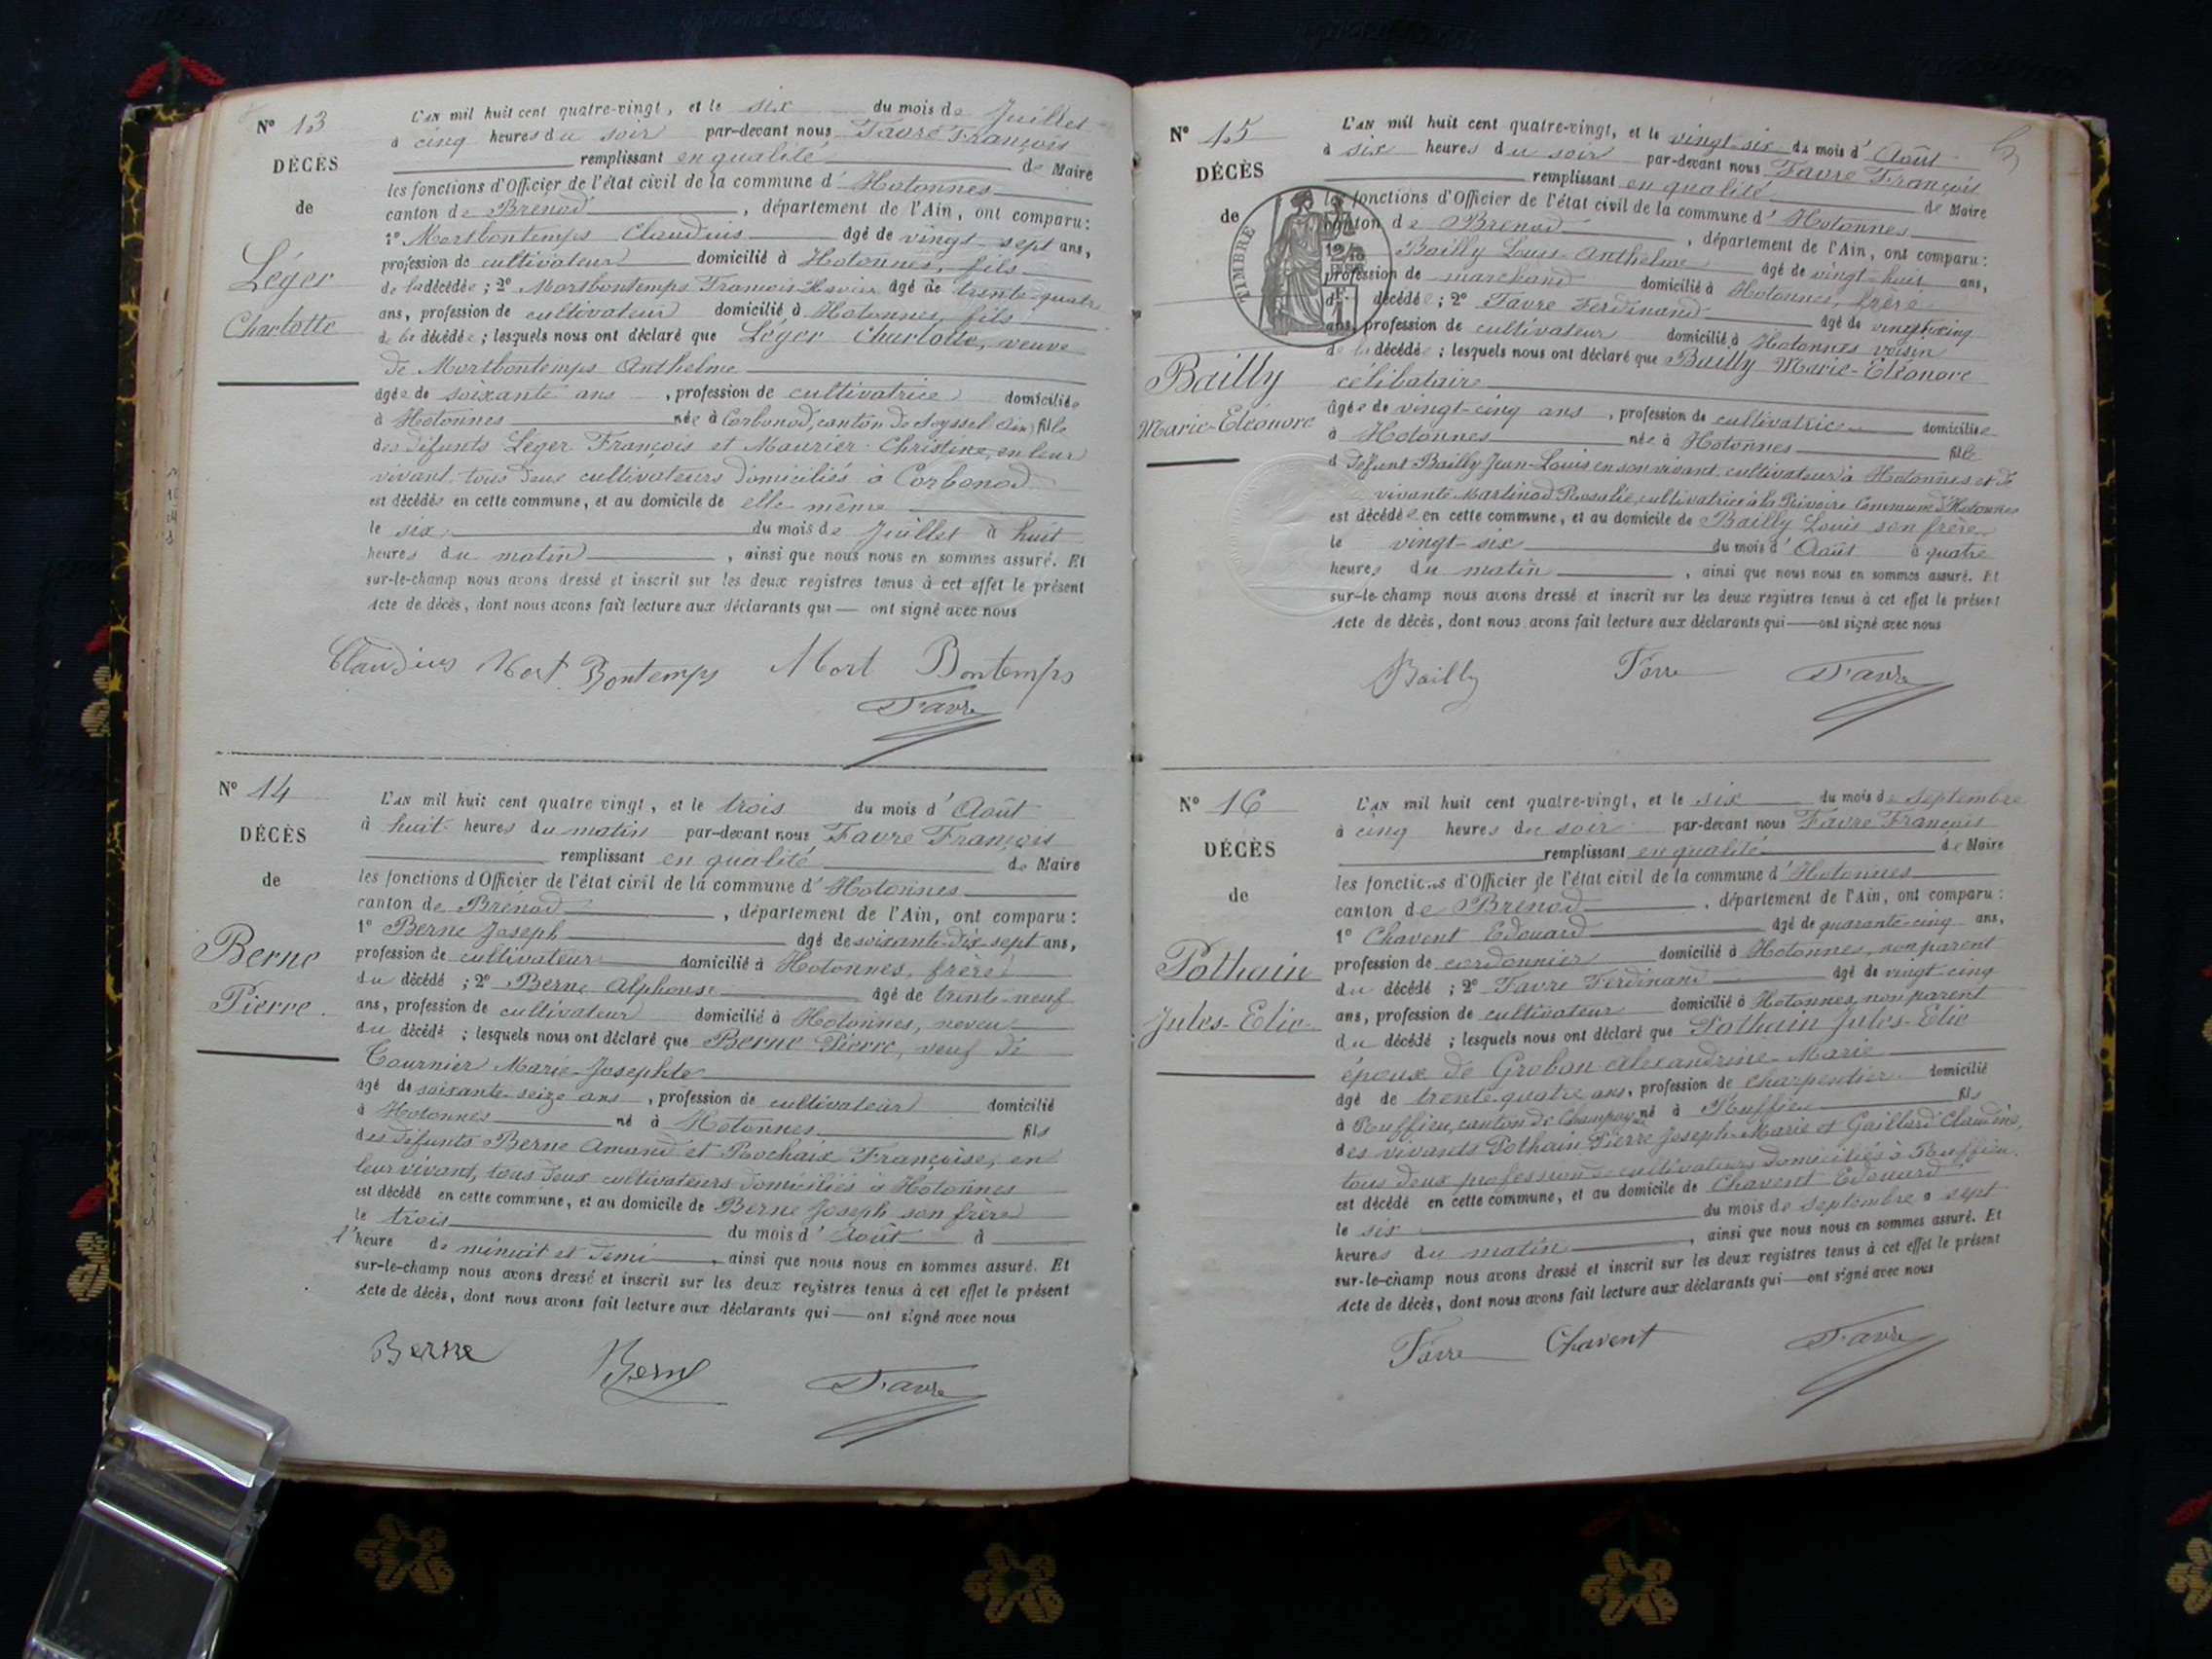 Nº 13
DÉCÈS
de
Léger
Charlotte
L'AN mil huit cent quatre-vingt, et le six du mois de Juillet
à cinq heures du soir par-devant nous Favre François
remplissant en qualité de Maire
les fonctions d'Officier de l'état civil de la commune d'Hotonnes
canton de Brénod, département de l'Ain, ont comparu:
1º Mortbontemps Claudius âgé de vingt-sept ans,
profession de cultivateur domicilié à Hotonnes, fils
de la décédée; 2º Mortbontemps François Xavier âgé de trente-quatre
ans, profession de cultivateur domicilié à Hotonnes, fils
de la décédée; lesquels nous ont déclaré que Léger Charlotte, veuve
de Mortbontemps Anthelme
âgée de soixante ans, profession de cultivatrice domiciliée
à Hotonnes née à Corbonod, canton de Seyssel (Ain) fille
des défunts Léger François et Maurier Christine, en leur
vivant tous deux cultivateurs domiciliés à Corbonod
est décédée en cette commune, et au domicile de elle même
le six du mois de Juillet à huit
heures du matin, ainsi que nous nous en sommes assuré. Et
sur-le-champ nous avons dressé et inscrit sur les deux registres tenus à cet effet le présent
Acte de décès, dont nous avons fait lecture aux déclarants qui — ont signé avec nous
Claudius Mort Bontemps Mort Bontemps
Favre
Nº 14
DÉCÈS
de
Berne
Pierre.
L'AN mil huit cent quatre vingt, et le trois du mois d'Août
à huit heures du matin par-devant nous Favre François
remplissant en qualité de Maire
les fonctions d'Officier de l'état civil de la commune d'Hotonnes
canton de Brénod, département de l'Ain, ont comparu:
1º Berne Joseph âgé de soixante-dix-sept ans,
profession de cultivateur domicilié à Hotonnes, frère
du décédé; 2º Berne Alphonse âgé de trente-neuf
ans, profession de cultivateur domicilié à Hotonnes, neveu
du décédé; lesquels nous ont déclaré que Berne Pierre, veuf de
Tournier Marie-Josephte
âgé de soixante-seize ans, profession de cultivateur domicilié
à Hotonnes né à Hotonnes fils
des défunts Berne Amand et Rochaix Françoise, en
leur vivant, tous deux cultivateurs domiciliés à Hotonnes
est décédé en cette commune, et au domicile de Berne Joseph son frère
le trois du mois d'Août à
l'heure de minuit et demi, ainsi que nous nous en sommes assuré. Et
sur-le-champ nous avons dressé et inscrit sur les deux registres tenus à cet effet le présent
Acte de décès, dont nous avons fait lecture aux déclarants qui — ont signé avec nous
Berne Berne Favre
Nº 15
DÉCÈS
de
Bailly
Marie-Eléonore
TIMBRE
L'AN mil huit cent quatre-vingt, et le vingt-six du mois d'Août
à six heures du soir par-devant nous Favre François
remplissant en qualité de Maire
les fonctions d'Officier de l'état civil de la commune d'Hotonnes
canton de Brénod, département de l'Ain, ont comparu:
Bailly Louis-Anthelme âgé de vingt-huit ans,
profession de marchand domicilié à Hotonnes, frère
décédée; 2º Favre Ferdinand âgé de vingt-cinq
ans, profession de cultivateur domicilié à Hotonnes voisin
de la décédée; lesquels nous ont déclaré que Bailly Marie-Eléonore
célibataire
âgée de vingt-cinq ans, profession de cultivatrice domiciliée
à Hotonnes née à Hotonnes fille
d défunt Bailly Jean-Louis en son vivant cultivateur à Hotonnes et de
vivante Martinod Rosalie cultivatrice à la Rivoire Commune d'Hotonnes
est décédée en cette commune, et au domicile de Bailly Louis son frère
le vingt-six du mois d'Août à quatre
heures du matin, ainsi que nous nous en sommes assuré. Et
sur-le-champ nous avons dressé et inscrit sur les deux registres tenus à cet effet le présent
Acte de décès, dont nous avons fait lecture aux déclarants qui — ont signé avec nous
Bailly Favre Favre
Nº 16
DÉCÈS
de
Pothain
Jules-Elie
L'AN mil huit cent quatre-vingt, et le six du mois de Septembre
à cinq heures du soir par-devant nous Favre François
remplissant en qualité de Maire
les fonctions d'Officier de l'état civil de la commune d'Hotonnes
canton de Brénod, département de l'Ain, ont comparu:
1º Chavent Edouard âgé de quarante-cinq ans,
profession de cordonnier domicilié à Hotonnes, non parent
du décédé; 2º Favre Ferdinand âgé de vingt-cinq
ans, profession de cultivateur domicilié à Hotonnes, non parent
du décédé; lesquels nous ont déclaré que Pothain Jules-Elie
époux de Grobon Alexandrine-Marie
âgé de trente-quatre ans, profession de charpentier domicilié
à Ruffieu, canton de Champagne né à Ruffieu fils
des vivants Pothain Pierre Joseph-Marie et Gaillard Claudine,
tous deux profession de cultivateurs domiciliés à Ruffieu.
est décédé en cette commune, et au domicile de Chavent Edouard
le six du mois de Septembre à sept
heures du matin, ainsi que nous nous en sommes assuré. Et
sur-le-champ nous avons dressé et inscrit sur les deux registres tenus à cet effet le présent
Acte de décès, dont nous avons fait lecture aux déclarants qui — ont signé avec nous
Favre Chavent Favre